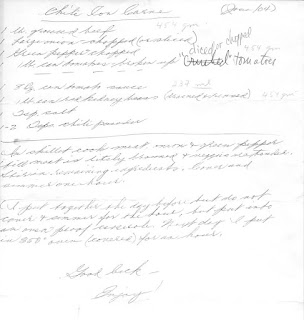 Chili Con Carne
1 lb. ground beef 454 gm
Large onion - chopped (or sliced)
Green Pepper - chopped
1 lb can tomatoes - broken up "diced or chopped tomatoes 454 gm
1 8 oz can tomato sauce 237 ml
1 lb can red kidney beans (drained & rinsed) 454 gm
1 Tsp salt
1-2 Tsps chili powder
In skillet cook meat, onion & green pepper
till meat is lightly browned & veggies are tender.
Stir in remaining ingredients. Cover and
simmer one hour.
(I put together the day before but do not
cover & simmer for the hour, but put into
an oven proof casserole. Next day I put
in 350° oven (covered) for an hour.
Good luck -
Enjoy!